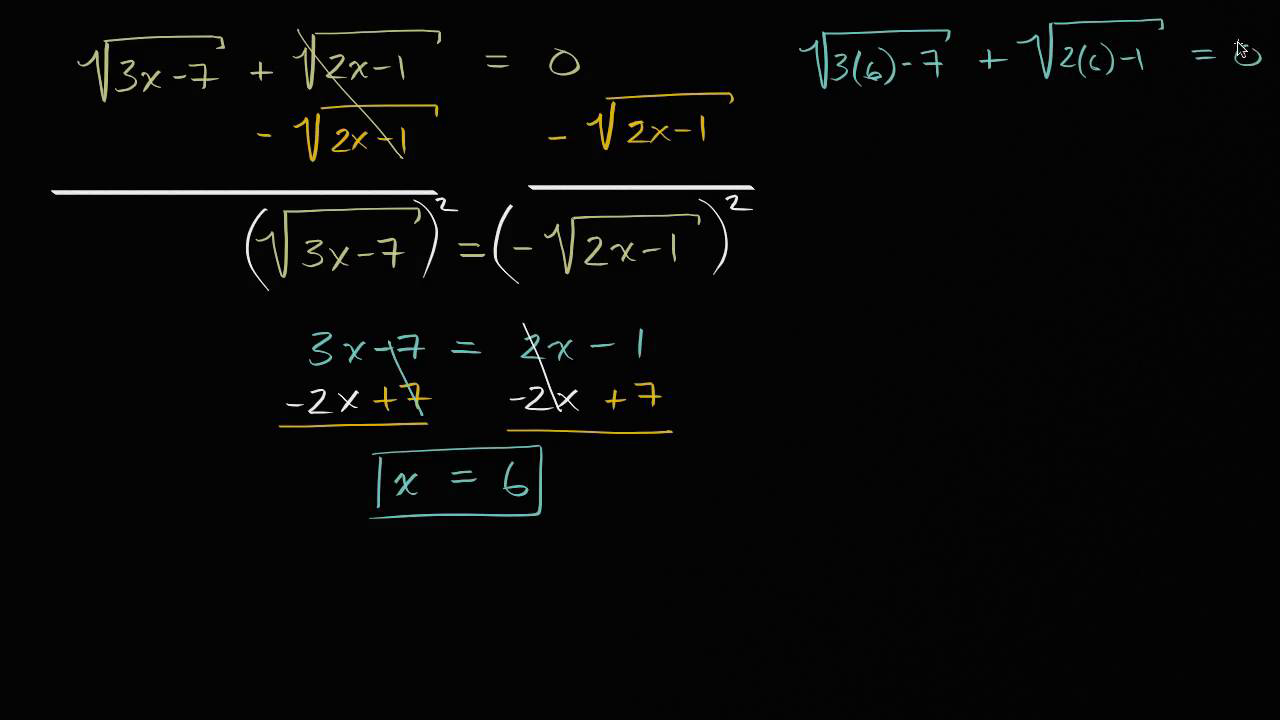 √(3x-7) + √(2x-1) = 0
- √(2x-1) - √(2x-1)
(√(3x-7))² = (-√(2x-1))²
3x-7 = 2x-1
-2x +7 -2x +7
x = 6
√(3(6)-7) + √(2(6)-1) = 0